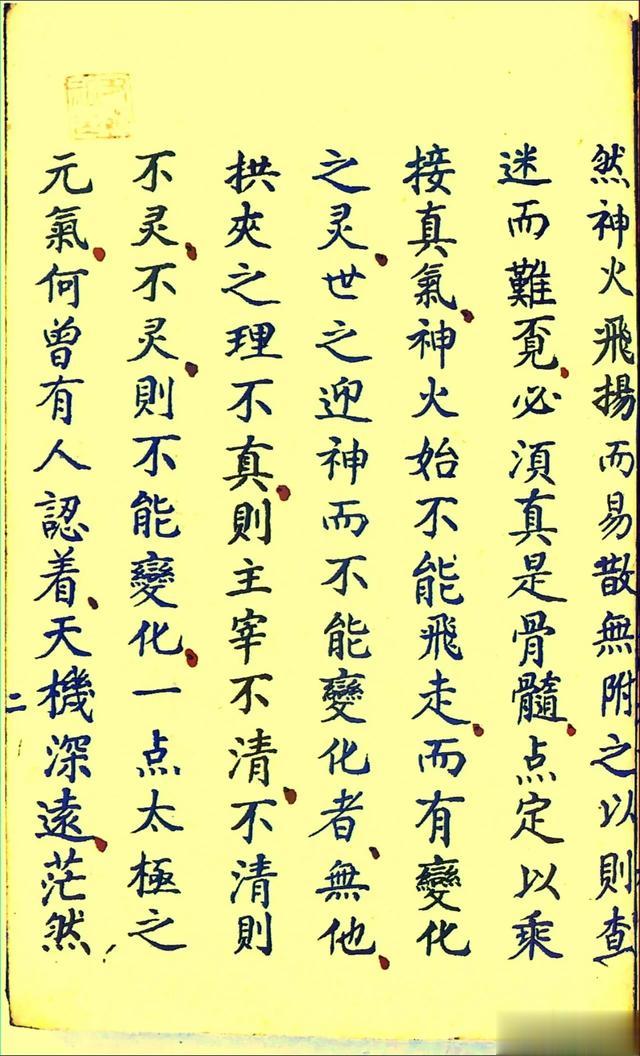 然神火飛揚而易散無附之以則查
迷而難覔必須真是骨髓点定以乘
接真氣神火始不能飛走而有變化
之灵世之迎神而不能變化者無他
拱夾之理不真則主宰不清不清則
不灵不灵則不能變化一点太極之
元氣何曾有人認着天機深遠茫然
二